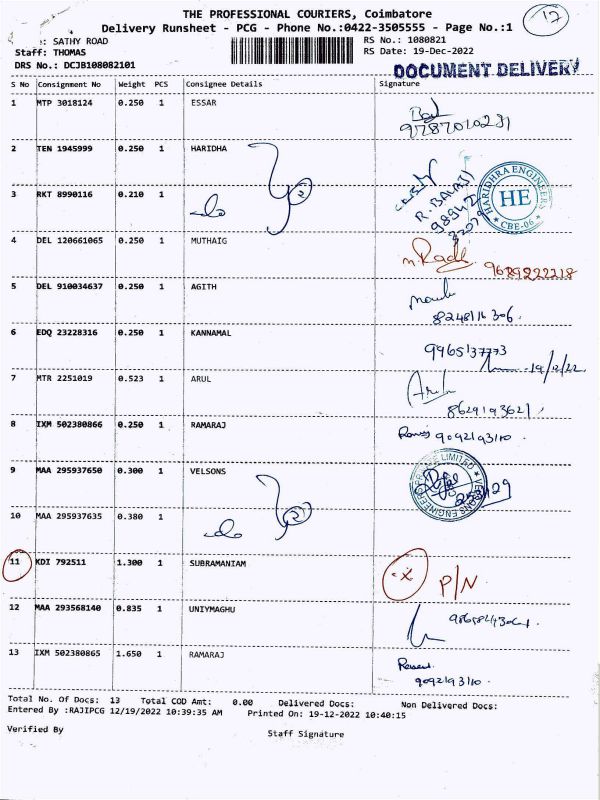 THE PROFESSIONAL COURIERS, Coimbatore
12
Delivery Runsheet - PCG - Phone No.:0422-3505555 - Page No.:1
: SATHY ROAD
RS No.: 1080821
Staff: THOMAS
RS Date: 19-Dec-2022
DRS No.: DCJB108082101
DOCUMENT DELIVERY
S No Consignment No Weight PCS Consignee Details Signature
1 MTP 3018124 0.250 1 ESSAR
9787010231
2 TEN 1945999 0.250 1 HARIDHA
R. BALAJI
HARIDHRA ENGINEERS
HE
* CBE-06 *
3 RKT 8990116 0.210 1 do
4 DEL 120661065 0.250 1 MUTHAIG
9629222218
5 DEL 910034637 0.250 1 AGITH
8248116306
6 EDQ 23228316 0.250 1 KANNAMAL
9965137773
19/12/22
7 MTR 2251019 0.523 1 ARUL
8629193621
8 IXM 502380866 0.250 1 RAMARAJ
9092193110
9 MAA 295937650 0.300 1 VELSONS
10 MAA 295937635 0.380 1 do
11 KDI 792511 1.300 1 SUBRAMANIAM
x P/N
12 MAA 293568140 0.835 1 UNIYMAGHU
13 IXM 502380865 1.650 1 RAMARAJ
9092193110
Total No. Of Docs: 13 Total COD Amt: 0.00 Delivered Docs: Non Delivered Docs:
Entered By :RAJIPCG 12/19/2022 10:39:35 AM Printed On: 19-12-2022 10:40:15
Verified By
Staff Signature